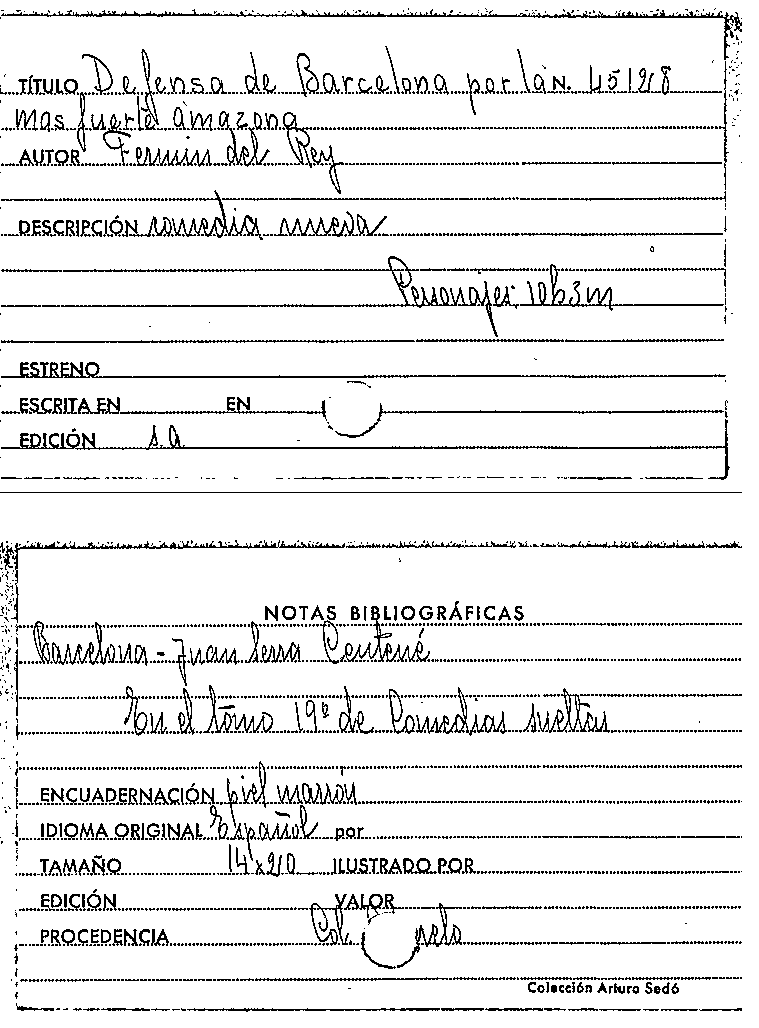 TÍTULO Defensa de Barcelona por la N. 45128
mas fuerte amazona
AUTOR Fermin del Rey
DESCRIPCIÓN comedia nueva
Personajes: 10h3m
ESTRENO
ESCRITA EN EN
EDICIÓN s.a
NOTAS BIBLIOGRÁFICAS
Barcelona - Juan Serra Centené
En el tomo 19º de Comedias sueltas
ENCUADERNACIÓN piel marrón
IDIOMA ORIGINAL Español por
TAMAÑO 14x20 ILUSTRADO POR
EDICIÓN VALOR
PROCEDENCIA Col.
Colección Arturo Sedó